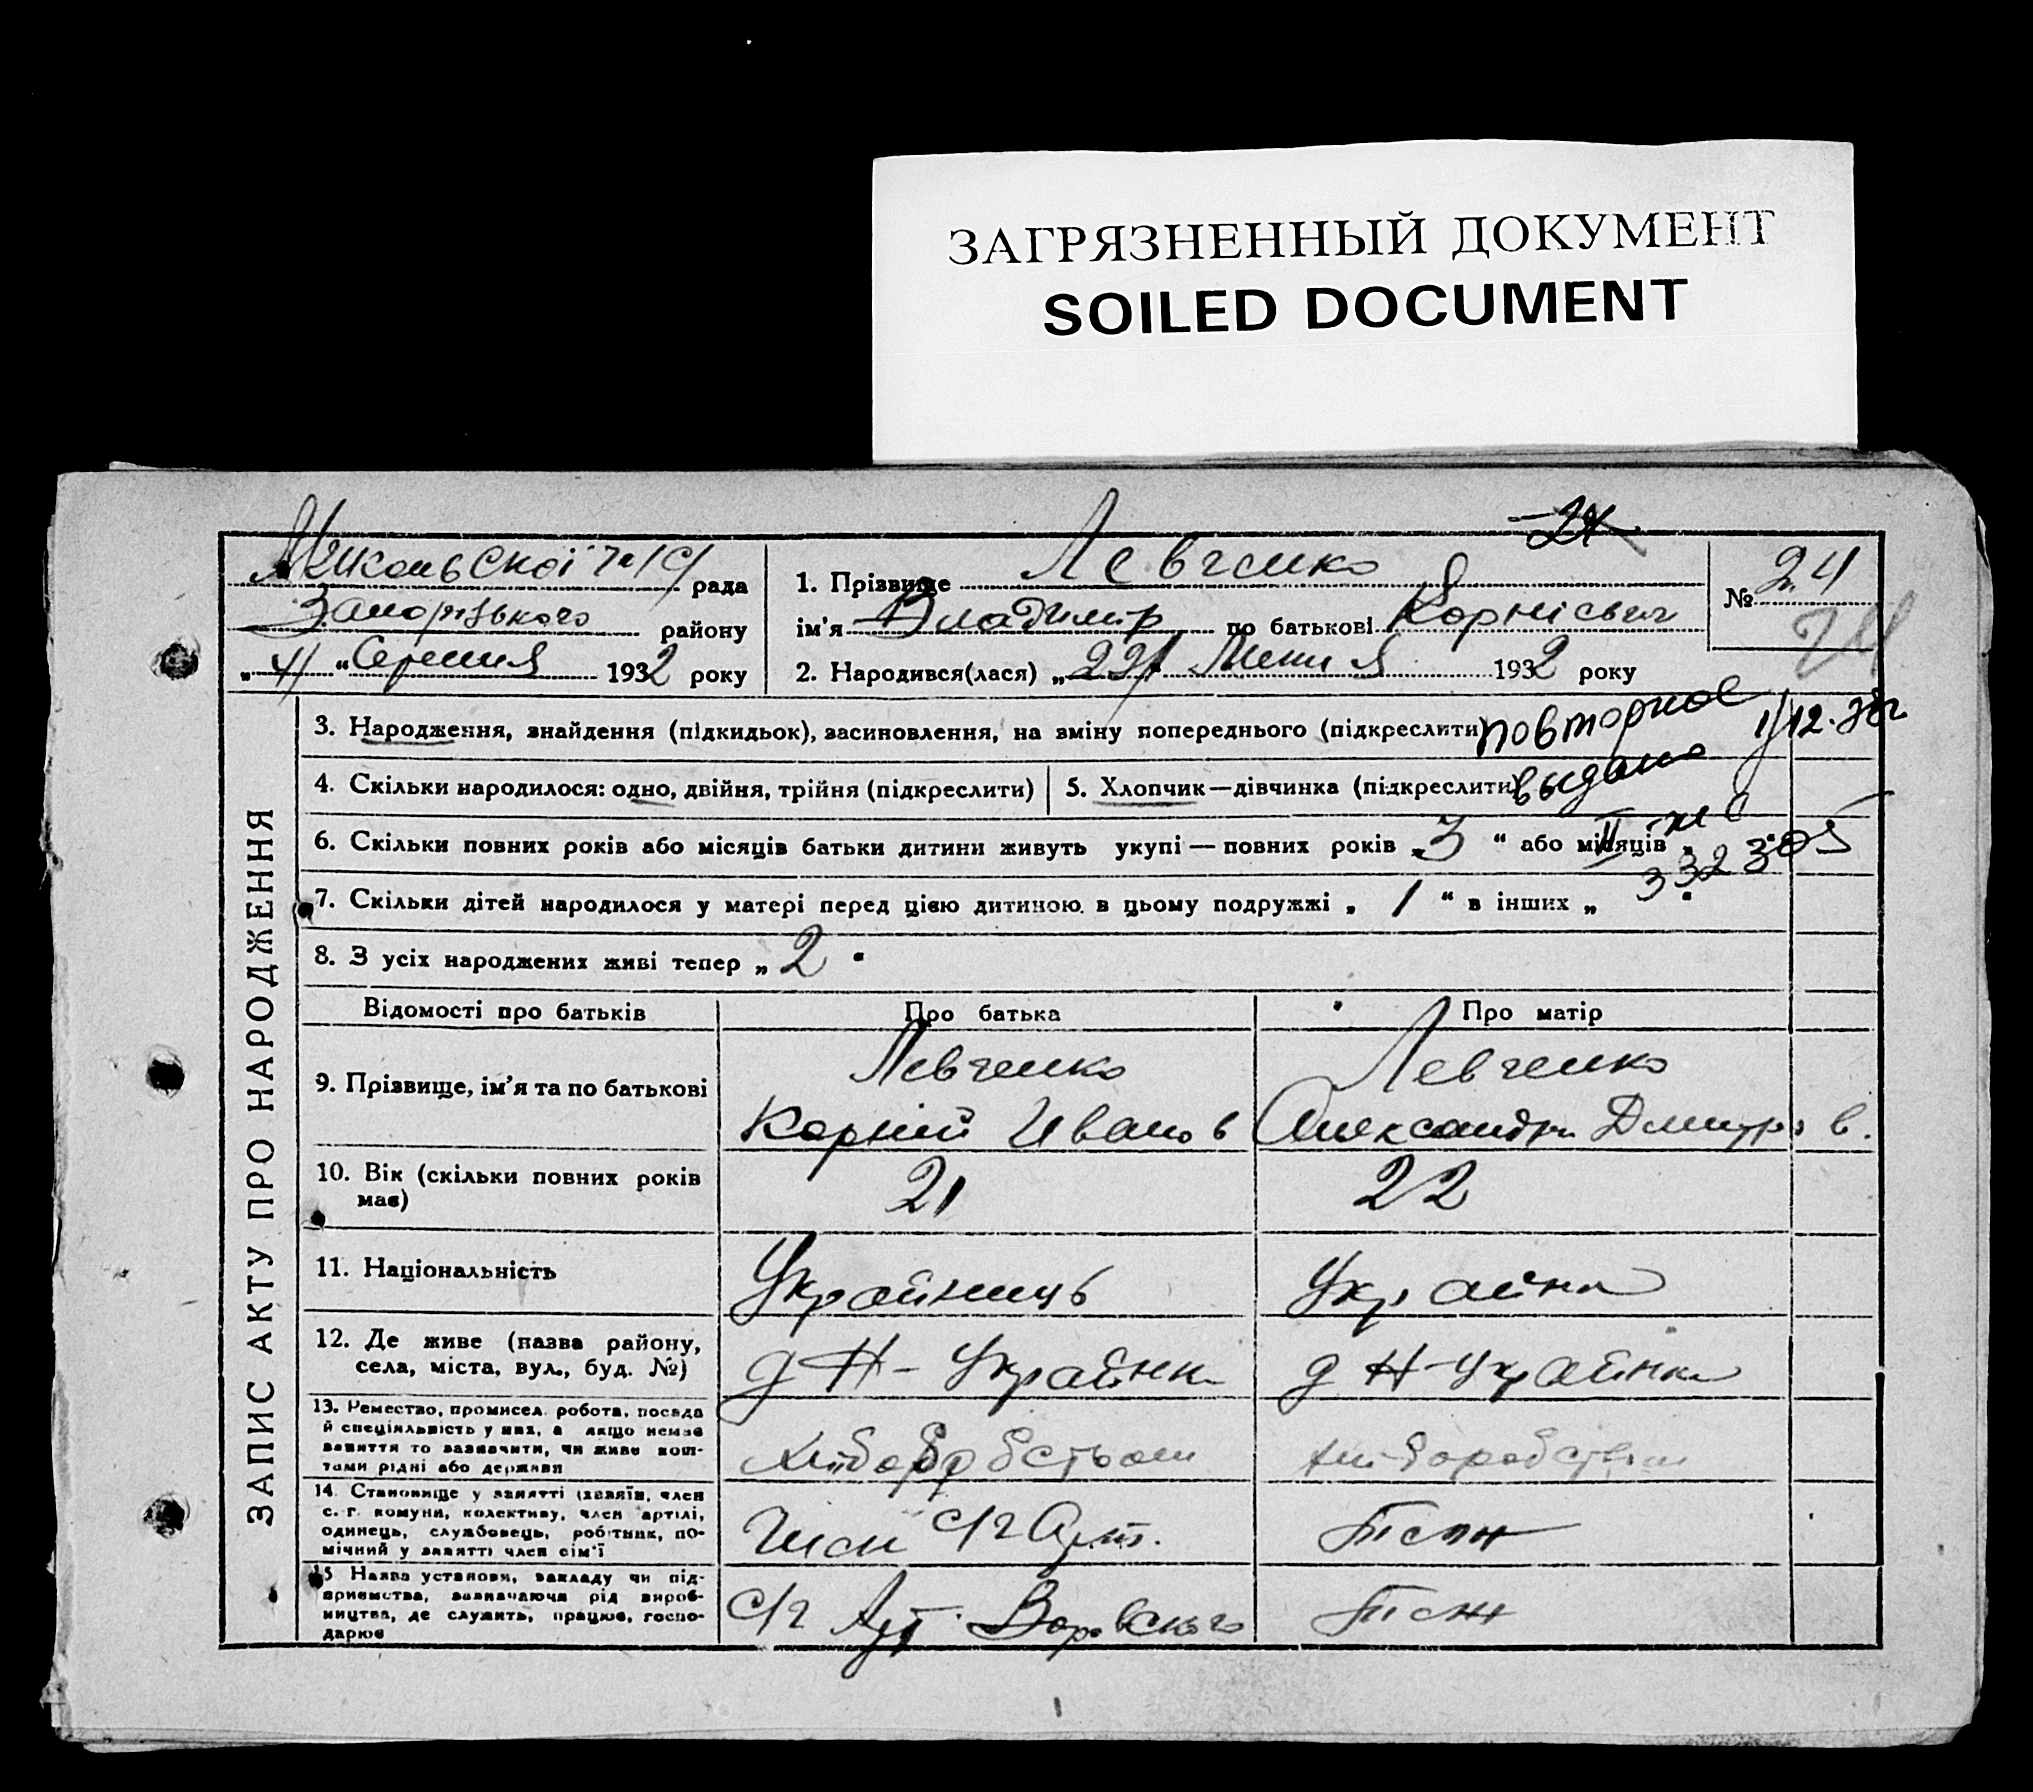 ЗАГРЯЗНЕННЫЙ ДОКУМЕНТ
SOILED DOCUMENT
24
рада
Запорізького району
„4" Серпня 1932 року
1. Прізвище Левченко
ім'я Владимір по батькові Корнієвич
2. Народився(лася) „22" Липня 1932 року
№ 24
24
ЗАПИС АКТУ ПРО НАРОДЖЕННЯ
3. Народження, знайдення (підкидьок), засиновлення, на зміну попереднього (підкреслити)
повторное
выдано
4. Скільки народилося: одно, двійня, трійня (підкреслити)
5. Хлопчик—дівчинка (підкреслити)
6. Скільки повних років або місяців батьки дитини живуть укупі — повних років „3" або місяців „
332305
7. Скільки дітей народилося у матері перед цією дитиною в цьому подружжі „1" в інших „ "
8. З усіх народжених живі тепер „2"
Відомості про батьків Про батька Про матір
9. Прізвище, ім'я та по батькові
Левченко
Корній Иванов
Левченко
Александра Дмитров.
10. Вік (скільки повних років має)
21
22
11. Національність
Украйнець
Украйнка
12. Де живе (назва району,
села, міста, вул., буд. №)
д Н-Украйнка
д Н-Украйнка
13. Ремество, промисел, робота, посада
й спеціяльність у них, а якщо немає
заняття то зазначити, чи живе кош-
тами рідні або держави
Хліборобством
Хліборобством
14. Становище у занятті (хазяїн, член
с.-г. комуни, колективу, член артілі,
одинець, службовець, робітник, по-
мічний у занятті член сім'ї
Член С/г Арт.
Теж
15 Назва установи, закладу чи під-
приємства, зазначаючи рід вироб-
ництва, де служить, працює, госпо-
дарює
С/г Арт. Воровского
Теж